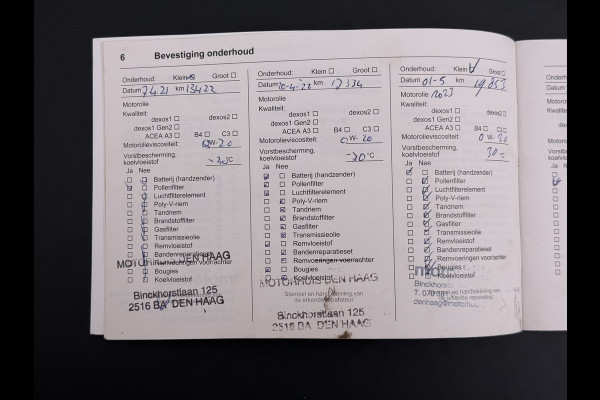 6 Bevestiging onderhoud
Onderhoud: Klein Groot
Datum 7.4.21 km 13422
Motorolie
Kwaliteit:
dexos1 dexos2
dexos1 Gen2
ACEA A3 B4 C3
Motorolieviscositeit: 0W-20
Vorstbescherming,
koelvloeistof -30°C
Ja Nee
Batterij (handzender)
Pollenfilter
Luchtfilterelement
Poly-V-riem
Tandriem
Brandstoffilter
Gasfilter
Transmissieolie
Remvloeistof
Bandenreparatieset
Remvoeringen voor/achter
Bougies
Koelvloeistof
MOTORHUIS DEN HAAG
Binckhorstlaan 125
2516 BA DEN HAAG
Onderhoud: Klein Groot
Datum 20-4-'22 km 17534
Motorolie
Kwaliteit:
dexos1 dexos2
dexos1 Gen2
ACEA A3 B4 C3
Motorolieviscositeit: 0W-20
Vorstbescherming,
koelvloeistof -30°C
Ja Nee
Batterij (handzender)
Pollenfilter
Luchtfilterelement
Poly-V-riem
Tandriem
Brandstoffilter
Gasfilter
Transmissieolie
Remvloeistof
Bandenreparatieset
Remvoeringen voor/achter
Bougies
Koelvloeistof
MOTORHUIS DEN HAAG
Stempel en handtekening van
de erkende reparateur
Binckhorstlaan 125
2516 BA DEN HAAG
Onderhoud: Klein Groot
Datum 01-5 km 19853
Motorolie 2023
Kwaliteit:
dexos1 dexos2
dexos1 Gen2
ACEA A3 B4 C3
Motorolieviscositeit: 0W-20
Vorstbescherming,
koelvloeistof 30°C
Ja Nee
Batterij (handzender)
Pollenfilter
Luchtfilterelement
Poly-V-riem
Tandriem
Brandstoffilter
Gasfilter
Transmissieolie
Remvloeistof
Bandenreparatieset
Remvoeringen voor/achter
Bougies
Koelvloeistof